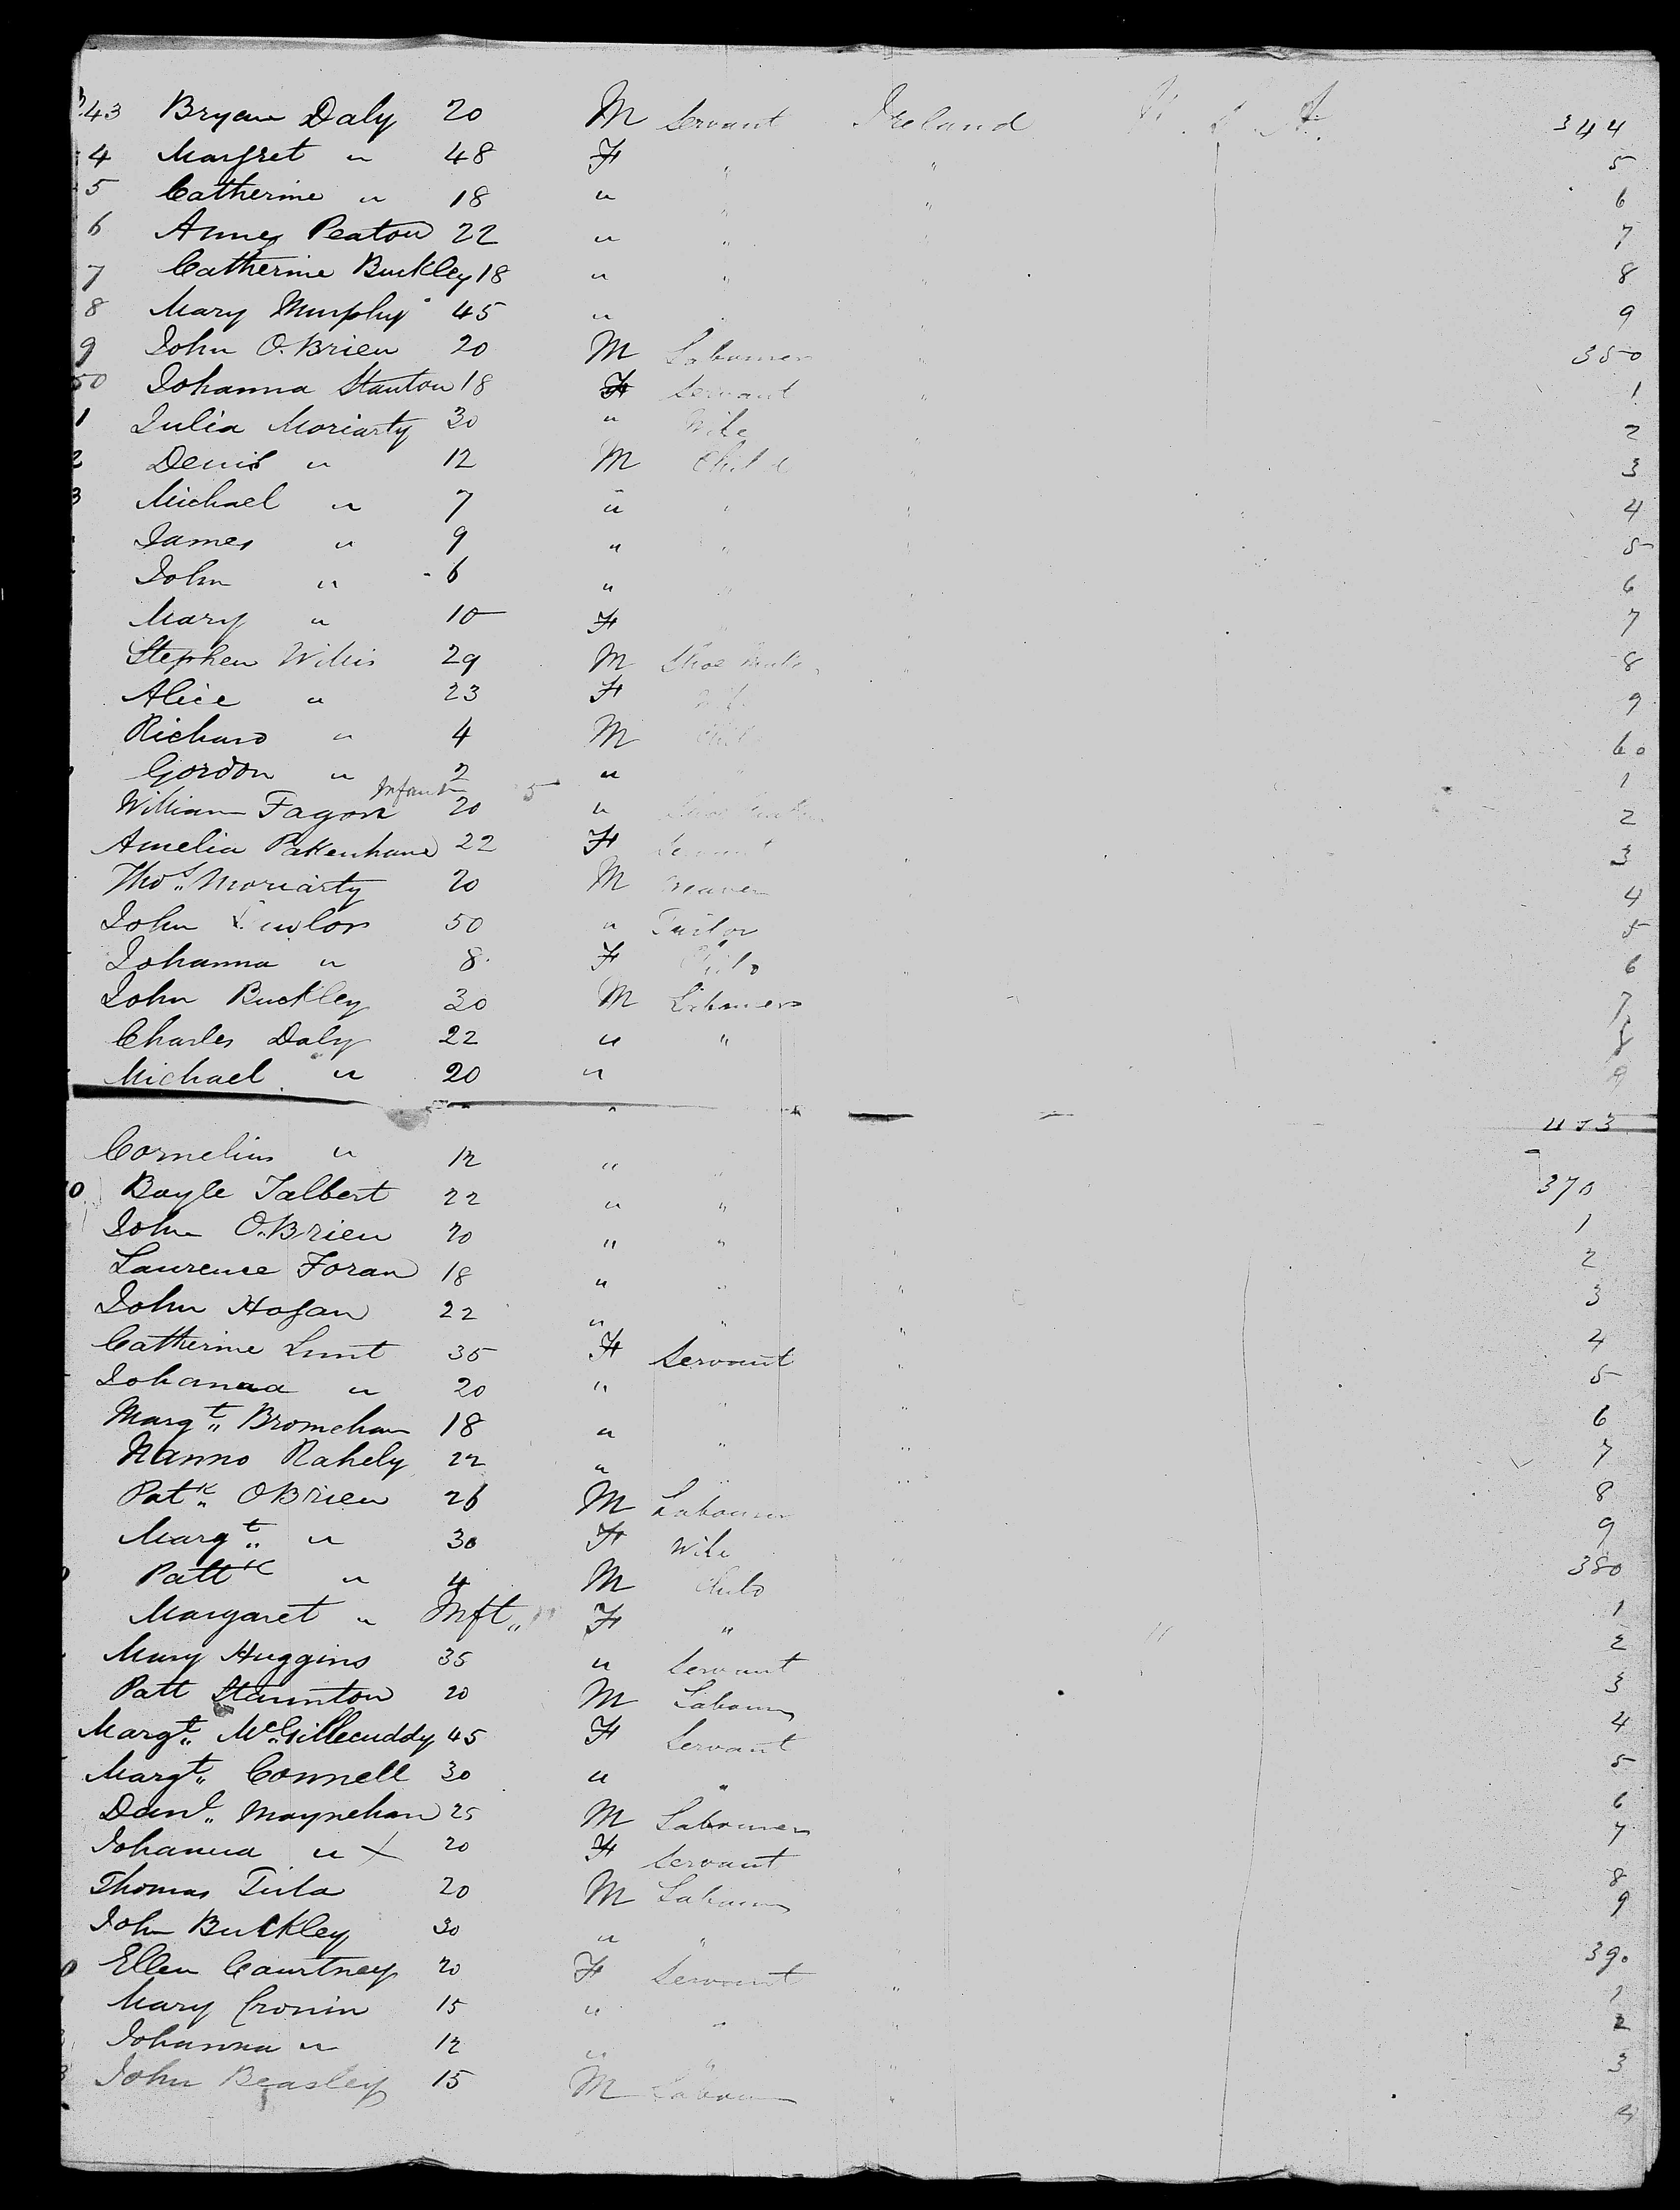 343 Bryan Daly 20 M Servant Ireland U.S.A. 344
4 Margret " 48 F " " 5
5 Catherine " 18 " " " 6
6 Anney Peaton 22 " " 7
7 Catherine Buckley 18 " " " 8
8 Mary Murphy 45 " 9
9 John O.Brien 20 M Labourer " 350
50 Johanna Stanton 18 F Servant " 1
1 Julia Moriarty 30 " Wife 2
2 Denis " 12 M Child 3
3 Michael " 7 " " " 4
James " 9 " " 5
John " 6 " " 6
Mary " 10 F 7
Stephen Willis 29 M Shoe Maker 8
Alice " 23 F Wife 9
Richard " 4 M Child 60
Gordon " 2 " 1
Infant 5
William Fagon 20 " Shoe Maker 2
Amelia Pakenham 22 F Servant 3
Thos. Moriarty 20 M Weaver 4
John Lawlor 50 " Tailor 5
Johanna " 8 F Child 6
John Buckley 30 M Labourer 7
Charles Daly 22 " " 8
Michael " 20 " 9
Cornelius " 12 "
0 Boyle Talbert 22 " " 370
John O.Brien 20 " " 1
Laurence Foran 18 " " 2
John Hogan 22 " " " 3
Catherine Lunt 35 F Servant " 4
Johanna " 20 " " " 5
Margt. 18 " " " 6
Nanno Rahely 22 " " 7
Patk. OBrien 26 M Labourer 8
Margt. " 30 F Wife 9
Pattk " 4 M Child 380
Margaret " Inft. F " " 1
Mary Huggins 35 " Servant 2
Patt Staunton 20 M Labourer 3
Margt. McGillecuddy 45 F Servant 4
Margt. Connell 30 " " 5
Danl. Moynehan 25 M Labourer 6
Johanna " X 20 F Servant 7
Thomas 20 M Labourer 8
John Buckley 30 " " 9
0 Ellen Courtney 20 F Servant 390
Mary Cronin 15 " " 1
Johanna " 12 " " 2
3 John Beasley 15 M Labourer 3
4